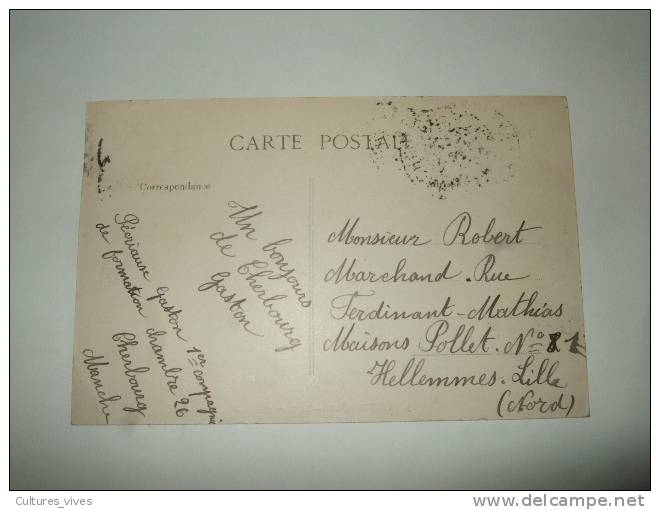 CARTE POSTALE
Correspondance
Un bonjours
de Cherbourg
Gaston
Gaston 1er compagnie
de formation chambre 26
Cherbourg
Manche
Monsieur Robert
Marchand. Rue
Ferdinant-Mathias
Maisons Pollet. No
Hellemmes-Lille
(Nord)
Cultures_vives
delcampe.net